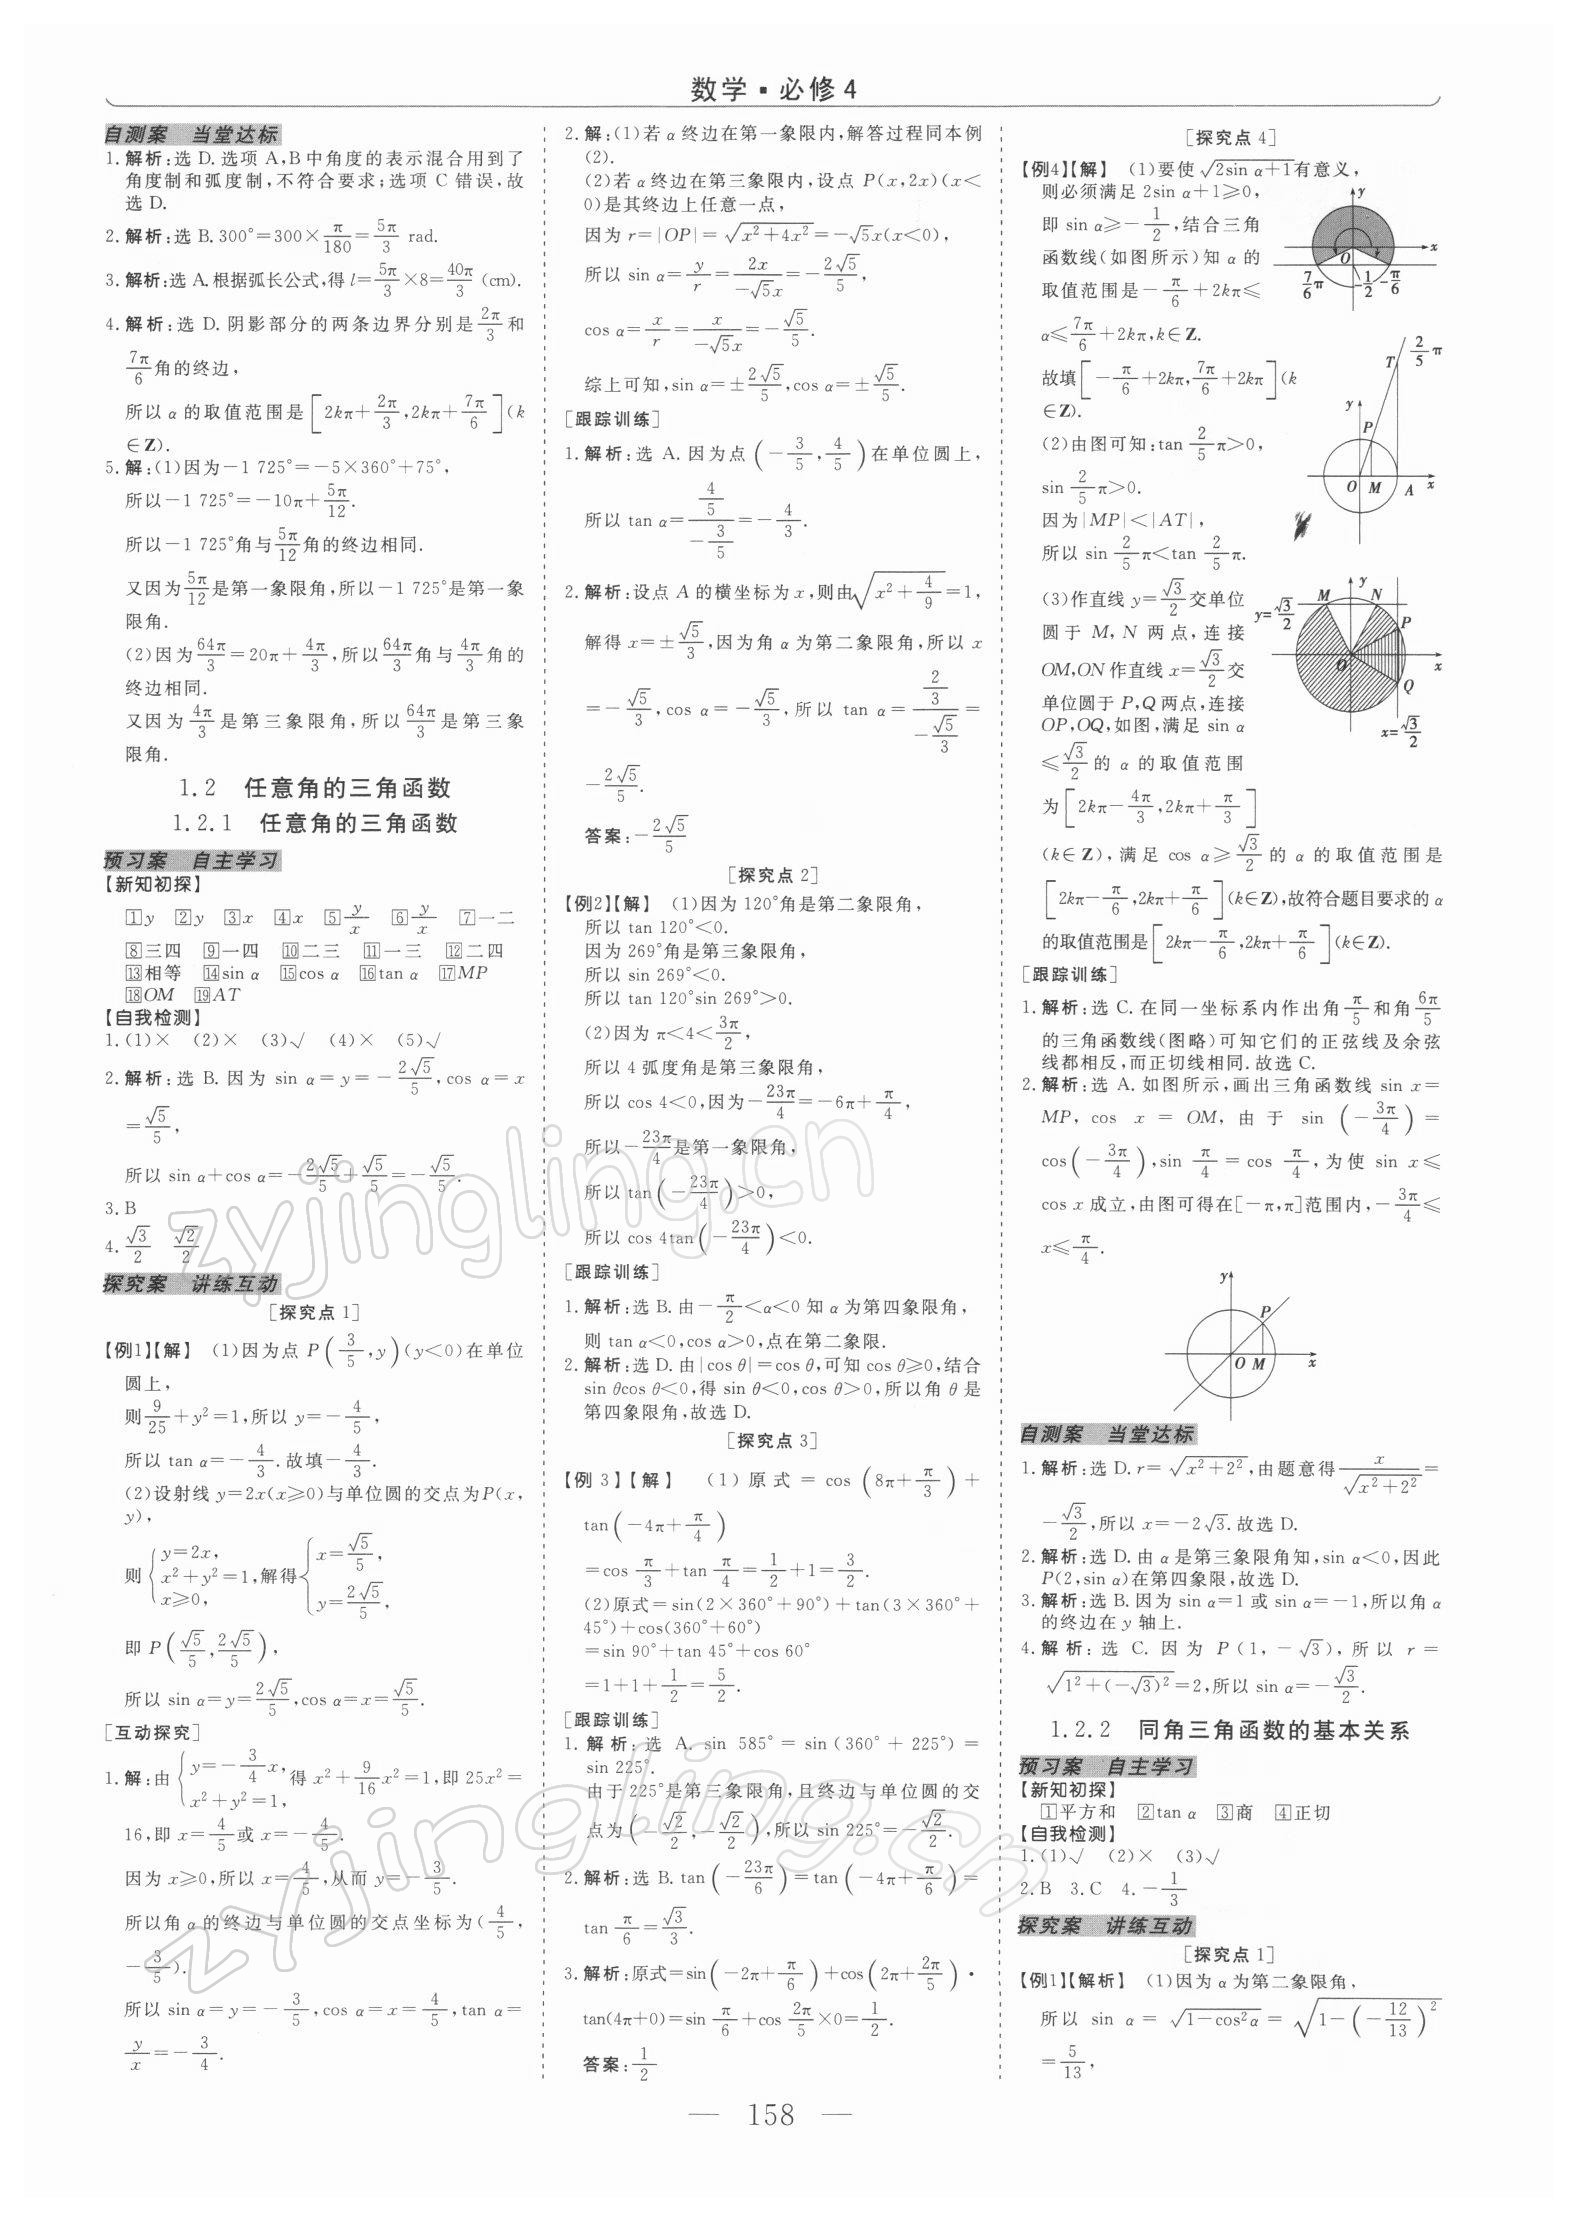 数学·必修4
自测案 当堂达标
1. 解析:选 D. 选项 A,B 中角度的表示混合用到了
角度制和弧度制,不符合要求;选项 C 错误,故
选 D.
2. 解析:选 B. 300°=300×π/180=5π/3 rad.
3. 解析:选 A. 根据弧长公式,得 l=5π/3×8=40π/3 (cm).
4. 解析:选 D. 阴影部分的两条边界分别是2π/3和
7π/6角的终边,
所以 α 的取值范围是[2kπ+2π/3,2kπ+7π/6](k
∈Z).
5. 解:(1)因为-1 725°=-5×360°+75°,
所以-1 725°=-10π+5π/12.
所以-1 725°角与5π/12角的终边相同.
又因为5π/12是第一象限角,所以-1 725°是第一象
限角.
(2)因为64π/3=20π+4π/3,所以64π/3角与4π/3角的
终边相同.
又因为4π/3是第三象限角,所以64π/3是第三象
限角.
1.2 任意角的三角函数
1.2.1 任意角的三角函数
预习案 自主学习
【新知初探】
1y 2y 3x 4x 5y/x 6y/x 7一二
8三四 9一四 10二三 11一三 12二四
13相等 14sin α 15cos α 16tan α 17MP
18OM 19AT
【自我检测】
1. (1)× (2)× (3)√ (4)× (5)√
2. 解析:选 B. 因为 sin α=y=-2√5/5,cos α=x
=√5/5,
所以 sin α+cos α=-2√5/5+√5/5=-√5/5.
3. B
4. √3/2 √2/2
探究案 讲练互动
[探究点 1]
【例1】【解】 (1)因为点 P(3/5,y)(y<0)在单位
圆上,
则9/25+y²=1,所以 y=-4/5,
所以 tan α=-4/3.故填-4/3.
(2)设射线 y=2x(x≥0)与单位圆的交点为P(x,
y),
则{y=2x, x²+y²=1, x≥0,解得{x=√5/5, y=2√5/5,
即 P(√5/5,2√5/5),
所以 sin α=y=2√5/5,cos α=x=√5/5.
[互动探究]
1. 解:由{y=-3/4x, x²+y²=1,得 x²+9/16x²=1,即 25x²=
16,即 x=4/5或 x=-4/5.
因为 x≥0,所以 x=4/5,从而 y=-3/5.
所以角 α 的终边与单位圆的交点坐标为(4/5,
-3/5).
所以 sin α=y=-3/5,cos α=x=4/5,tan α=
y/x=-3/4.
2. 解:(1)若 α 终边在第一象限内,解答过程同本例
(2).
(2)若 α 终边在第三象限内,设点 P(x,2x)(x<
0)是其终边上任意一点,
因为 r=|OP|=√(x²+4x²)=-√5x(x<0),
所以 sin α=y/r=2x/(-√5x)=-2√5/5,
cos α=x/r=x/(-√5x)=-√5/5.
综上可知,sin α=±2√5/5,cos α=±√5/5.
[跟踪训练]
1. 解析:选 A. 因为点(-3/5,4/5)在单位圆上,
所以 tan α=(4/5)/(-3/5)=-4/3.
2. 解析:设点 A 的横坐标为 x,则由√(x²+4/9)=1,
解得 x=±√5/3,因为角 α 为第二象限角,所以 x
=-√5/3,cos α=-√5/3,所以 tan α=(2/3)/(-√5/3)=
-2√5/5.
答案:-2√5/5
[探究点 2]
【例2】【解】 (1)因为 120°角是第二象限角,
所以 tan 120°<0.
因为 269°角是第三象限角,
所以 sin 269°<0.
所以 tan 120°sin 269°>0.
(2)因为 π<4<3π/2,
所以 4 弧度角是第三象限角,
所以 cos 4<0,因为-23π/4=-6π+π/4,
所以-23π/4是第一象限角,
所以 tan(-23π/4)>0,
所以 cos 4tan(-23π/4)<0.
[跟踪训练]
1. 解析:选 B. 由-π/2<α<0 知 α 为第四象限角,
则 tan α<0,cos α>0,点在第二象限.
2. 解析:选 D. 由|cos θ|=cos θ,可知 cos θ≥0,结合
sin θcos θ<0,得 sin θ<0,cos θ>0,所以角 θ 是
第四象限角,故选 D.
[探究点 3]
【例 3】【解】 (1) 原式=cos(8π+π/3)+
tan(-4π+π/4)
=cos π/3+tan π/4=1/2+1=3/2.
(2)原式=sin(2×360°+90°)+tan(3×360°+
45°)+cos(360°+60°)
=sin 90°+tan 45°+cos 60°
=1+1+1/2=5/2.
[跟踪训练]
1. 解析:选 A. sin 585°=sin(360°+225°)=
sin 225°.
由于 225°是第三象限角,且终边与单位圆的交
点为(-√2/2,-√2/2),所以 sin 225°=-√2/2.
2. 解析:选 B. tan(-23π/6)=tan(-4π+π/6)=
tan π/6=√3/3.
3. 解析:原式=sin(-2π+π/6)+cos(2π+2π/5)·
tan(4π+0)=sin π/6+cos 2π/5×0=1/2.
答案:1/2
[探究点 4]
【例4】【解】 (1)要使√(2sin α+1)有意义,
则必须满足 2sin α+1≥0,
即 sin α≥-1/2,结合三角
函数线(如图所示)知 α 的
取值范围是-π/6+2kπ≤
α≤7π/6+2kπ,k∈Z.
故填[-π/6+2kπ,7π/6+2kπ](k
∈Z).
y
x
O
7/6π
-1/2
-π/6
(2)由图可知:tan 2/5π>0,
sin 2/5π>0.
因为|MP|<|AT|,
所以 sin 2/5π<tan 2/5π.
T
2/5π
y
P
O M A x
(3)作直线 y=√3/2交单位
圆于 M,N 两点,连接
OM,ON作直线 x=√3/2交
单位圆于 P,Q 两点,连接
OP,OQ,如图,满足 sin α
≤√3/2的 α 的取值范围
为[2kπ-4π/3,2kπ+π/3]
(k∈Z),满足 cos α≥√3/2的 α 的取值范围是
[2kπ-π/6,2kπ+π/6](k∈Z),故符合题目要求的 α
的取值范围是[2kπ-π/6,2kπ+π/6](k∈Z).
y=√3/2
M
y
N
P
O
x
Q
x=√3/2
[跟踪训练]
1. 解析:选 C. 在同一坐标系内作出角π/5和角6π/5
的三角函数线(图略)可知它们的正弦线及余弦
线都相反,而正切线相同.故选 C.
2. 解析:选 A. 如图所示,画出三角函数线 sin x=
MP,cos x=OM,由于 sin(-3π/4)=
cos(-3π/4),sin π/4=cos π/4,为使 sin x≤
cos x 成立,由图可得在[-π,π]范围内,-3π/4≤
x≤π/4.
y
P
O M x
自测案 当堂达标
1. 解析:选 D. r=√(x²+2²),由题意得x/√(x²+2²)=
-√3/2,所以 x=-2√3.故选 D.
2. 解析:选 D. 由 α 是第三象限角知,sin α<0,因此
P(2,sin α)在第四象限,故选 D.
3. 解析:选 B. 因为 sin α=1 或 sin α=-1,所以角 α
的终边在 y 轴上.
4. 解析:选 C. 因为 P(1,-√3),所以 r=
√(1²+(-√3)²)=2,所以 sin α=-√3/2.
1.2.2 同角三角函数的基本关系
预习案 自主学习
【新知初探】
1平方和 2tan α 3商 4正切
【自我检测】
1. (1)√ (2)× (3)√
2. B 3. C 4. -1/3
探究案 讲练互动
[探究点 1]
【例1】【解析】 (1)因为 α 为第二象限角,
所以 sin α=√(1-cos²α)=√(1-(-12/13)²)
=5/13,
— 158 —
zyjingling.cn
zyjingling.cn